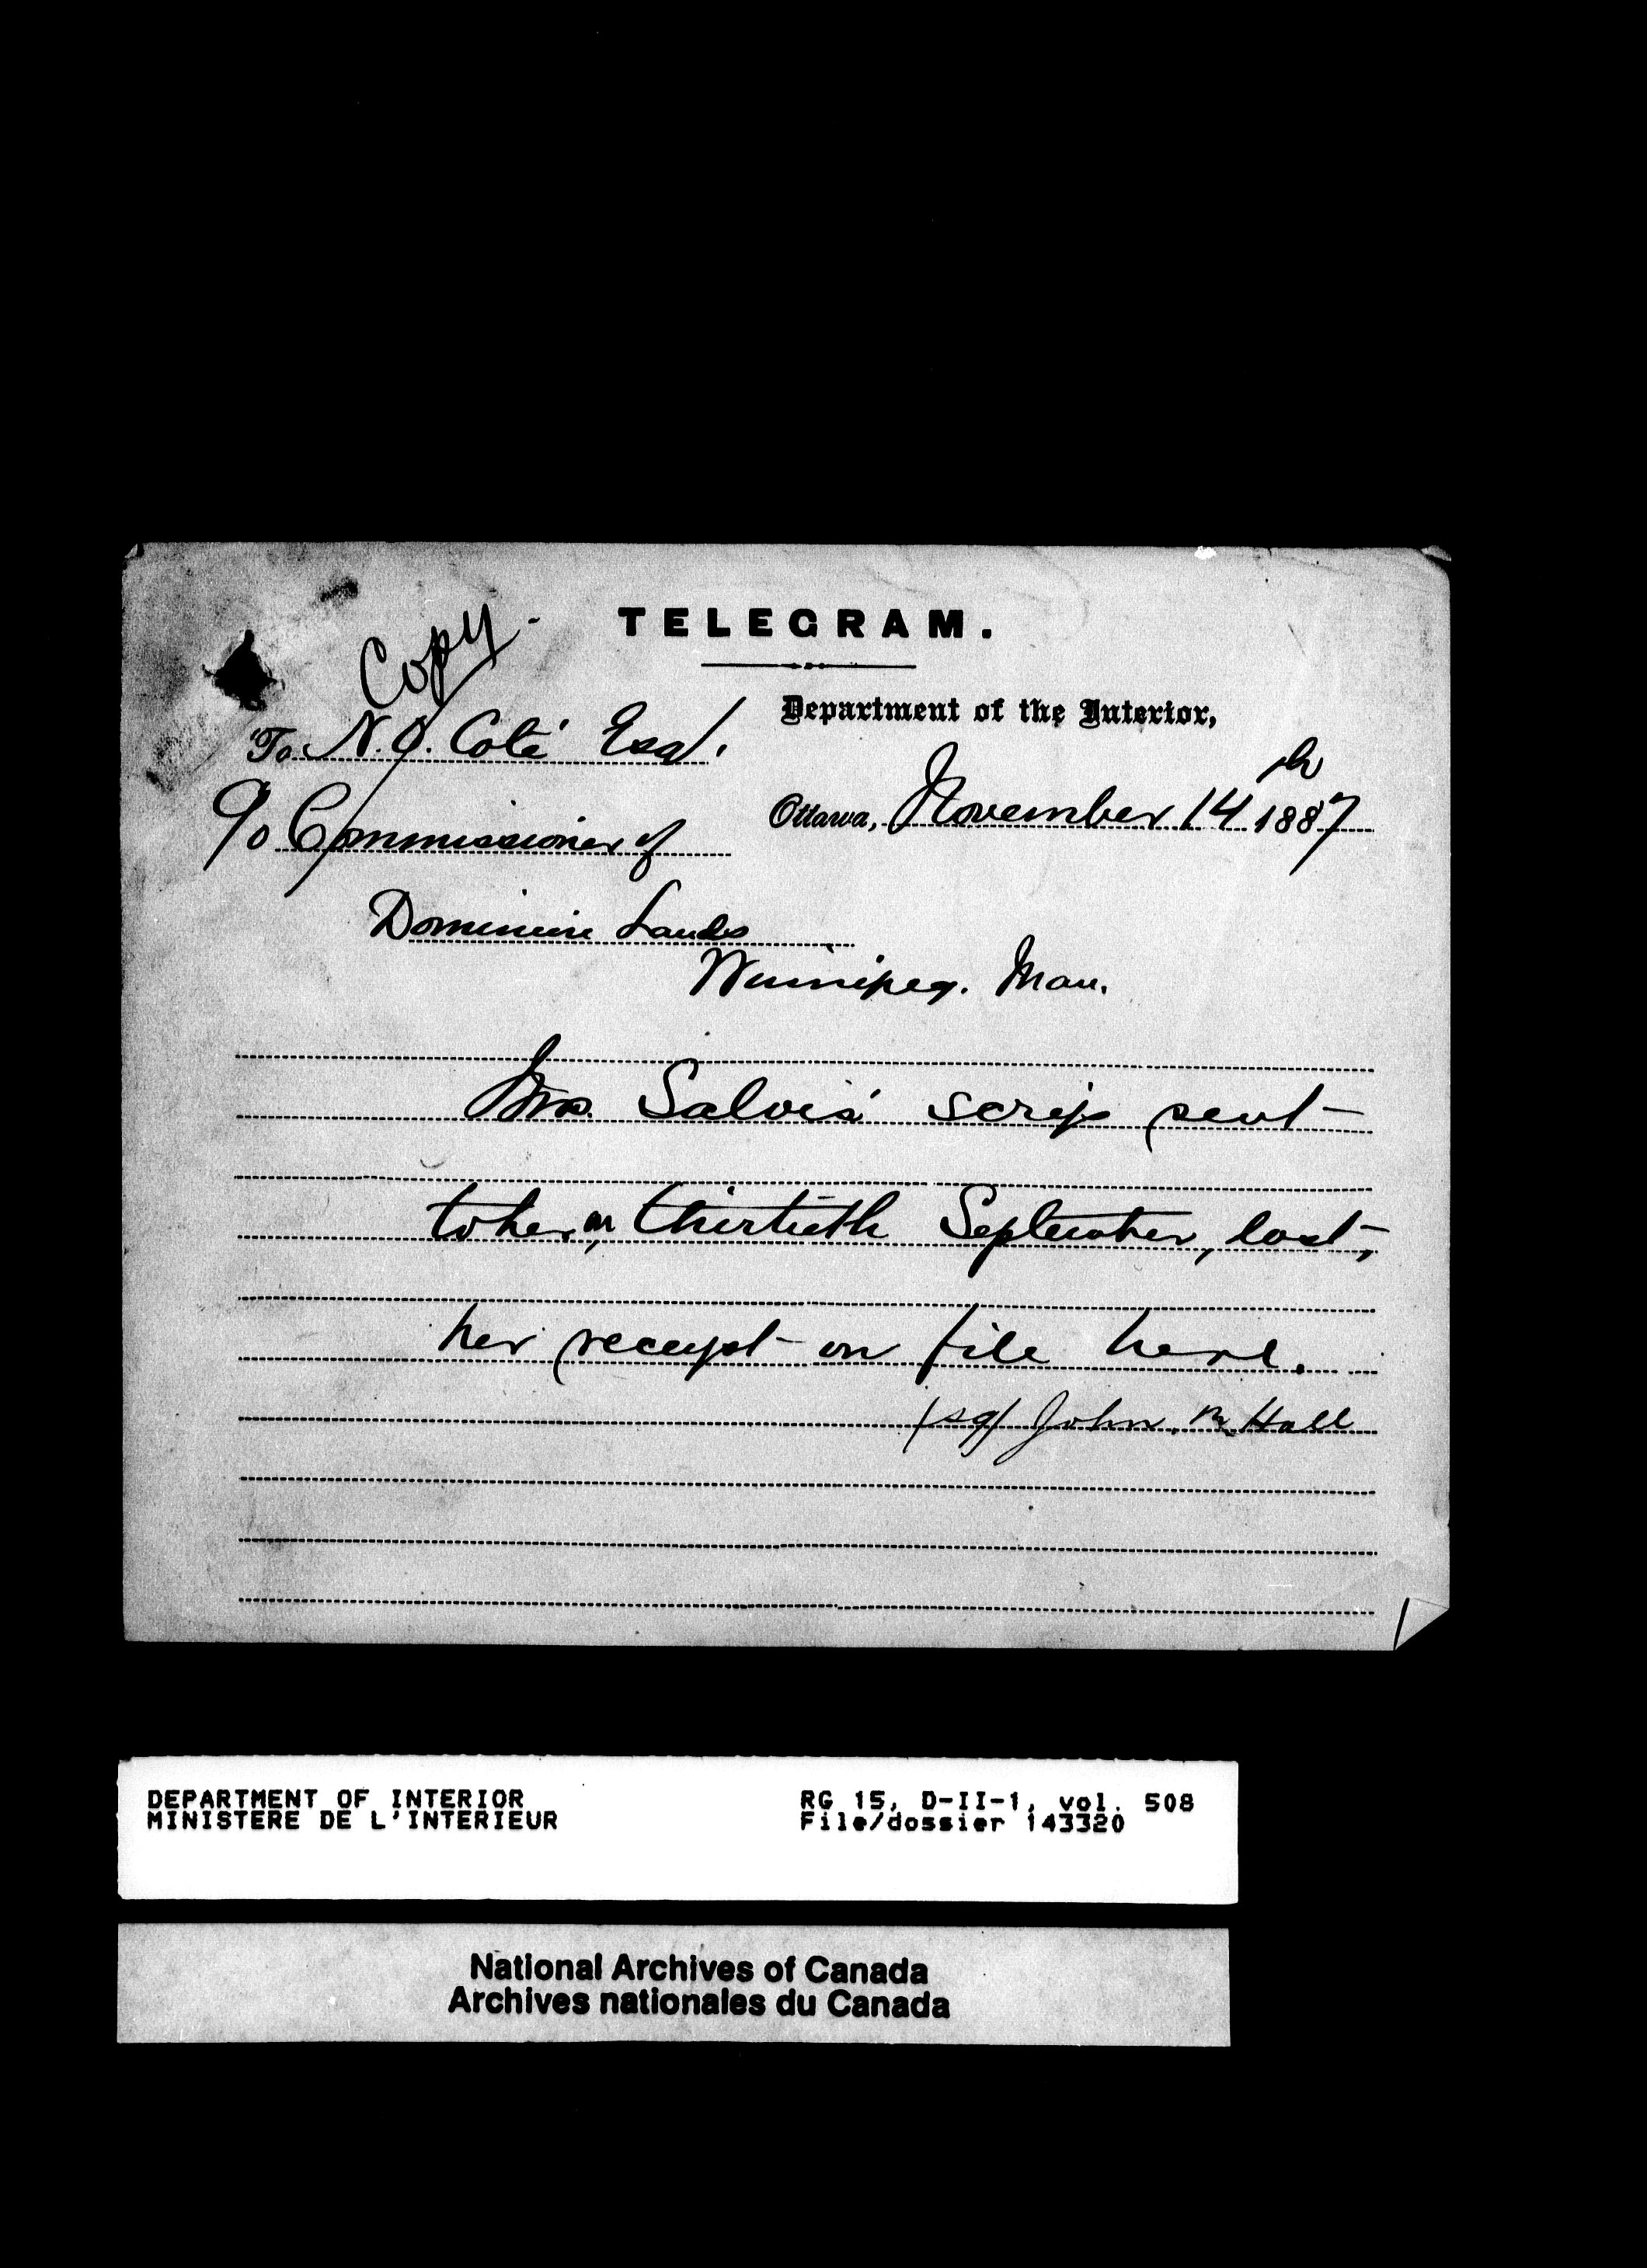 Copy.
TELEGRAM.
Department of the Interior,
To N.O. Coté Esq.
Ottawa, November 14th 1887
c/o Commissioner of
Dominion Lands
Winnipeg. Man.
Mrs. Salois' scrip sent
to her on thirtieth September, last,
her receipt on file here.
(sg) John R. Hall
DEPARTMENT OF INTERIOR
MINISTERE DE L'INTERIEUR
RG 15, D-II-1, vol. 508
File/dossier 143320
National Archives of Canada
Archives nationales du Canada